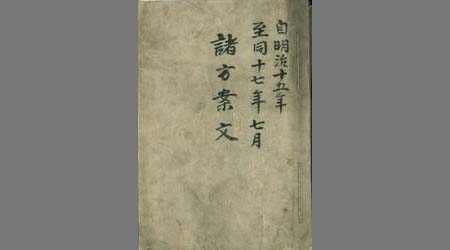 自明治十五年
至同十七年七月
諸方案文